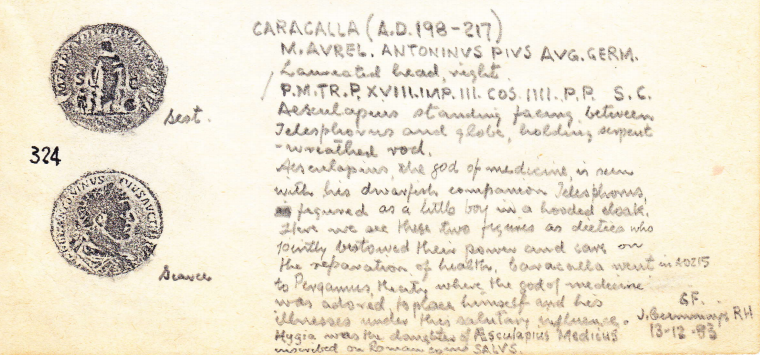 CARACALLA (A.D. 198-217)
M. AVREL. ANTONINVS PIVS AVG. GERM.
Laureated head, right.
P.M.TR.P. XVIII. IMP. III. COS. IIII. P.P. S.C.
Aesculapius standing facing between
Telesphorus and globe, holding serpent
-wreathed rod.
Aesculapius, the god of medicine, is seen
with his dwarfish companion Telesphorus,
figured as a little boy in a hooded cloak.
Here we see these two figures as deities who
jointly bestowed their power and care on
the reparation of health. Caracalla went in AD215
to Pergamus, the city where the god of medicine
was adored, to place himself and his
illnesses under this salutary influence.
Hygia was the daughter of Æsculapius Medicus
inscribed on Roman coins SALVS.
S C
Sest.
324
ANTONINVS PIVS AVG
Scarce
GF.
J. RH
13-12-93